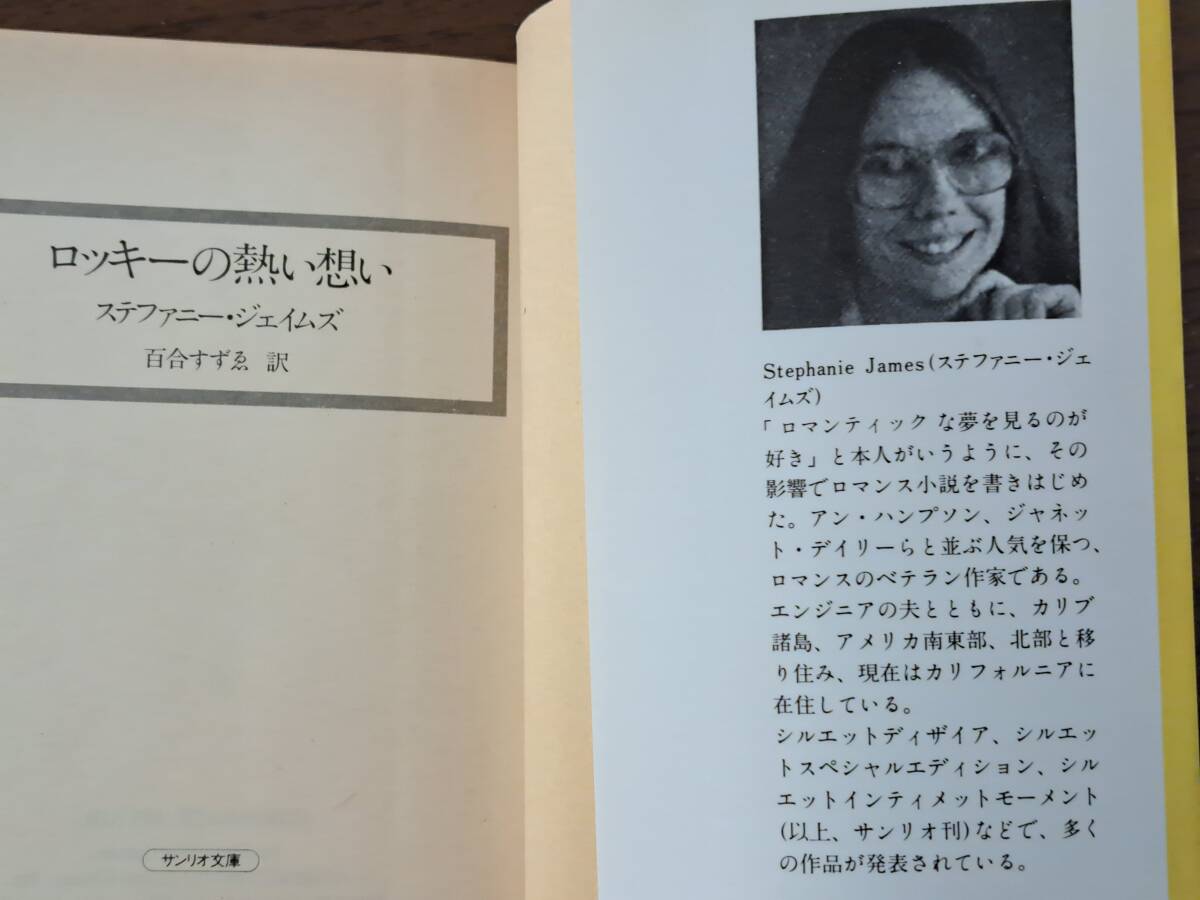 ロッキーの熱い想い
ステファニー・ジェイムズ
百合すずゑ 訳
サンリオ文庫
Stephanie James(ステファニー・ジェ
イムズ)
「ロマンティックな夢を見るのが
好き」と本人がいうように、その
影響でロマンス小説を書きはじめ
た。アン・ハンプソン、ジャネッ
ト・デイリーらと並ぶ人気を保つ、
ロマンスのベテラン作家である。
エンジニアの夫とともに、カリブ
諸島、アメリカ南東部、北部と移
り住み、現在はカリフォルニアに
在住している。
シルエットディザイア、シルエッ
トスペシャルエディション、シル
エットインティメットモーメント
(以上、サンリオ刊)などで、多く
の作品が発表されている。